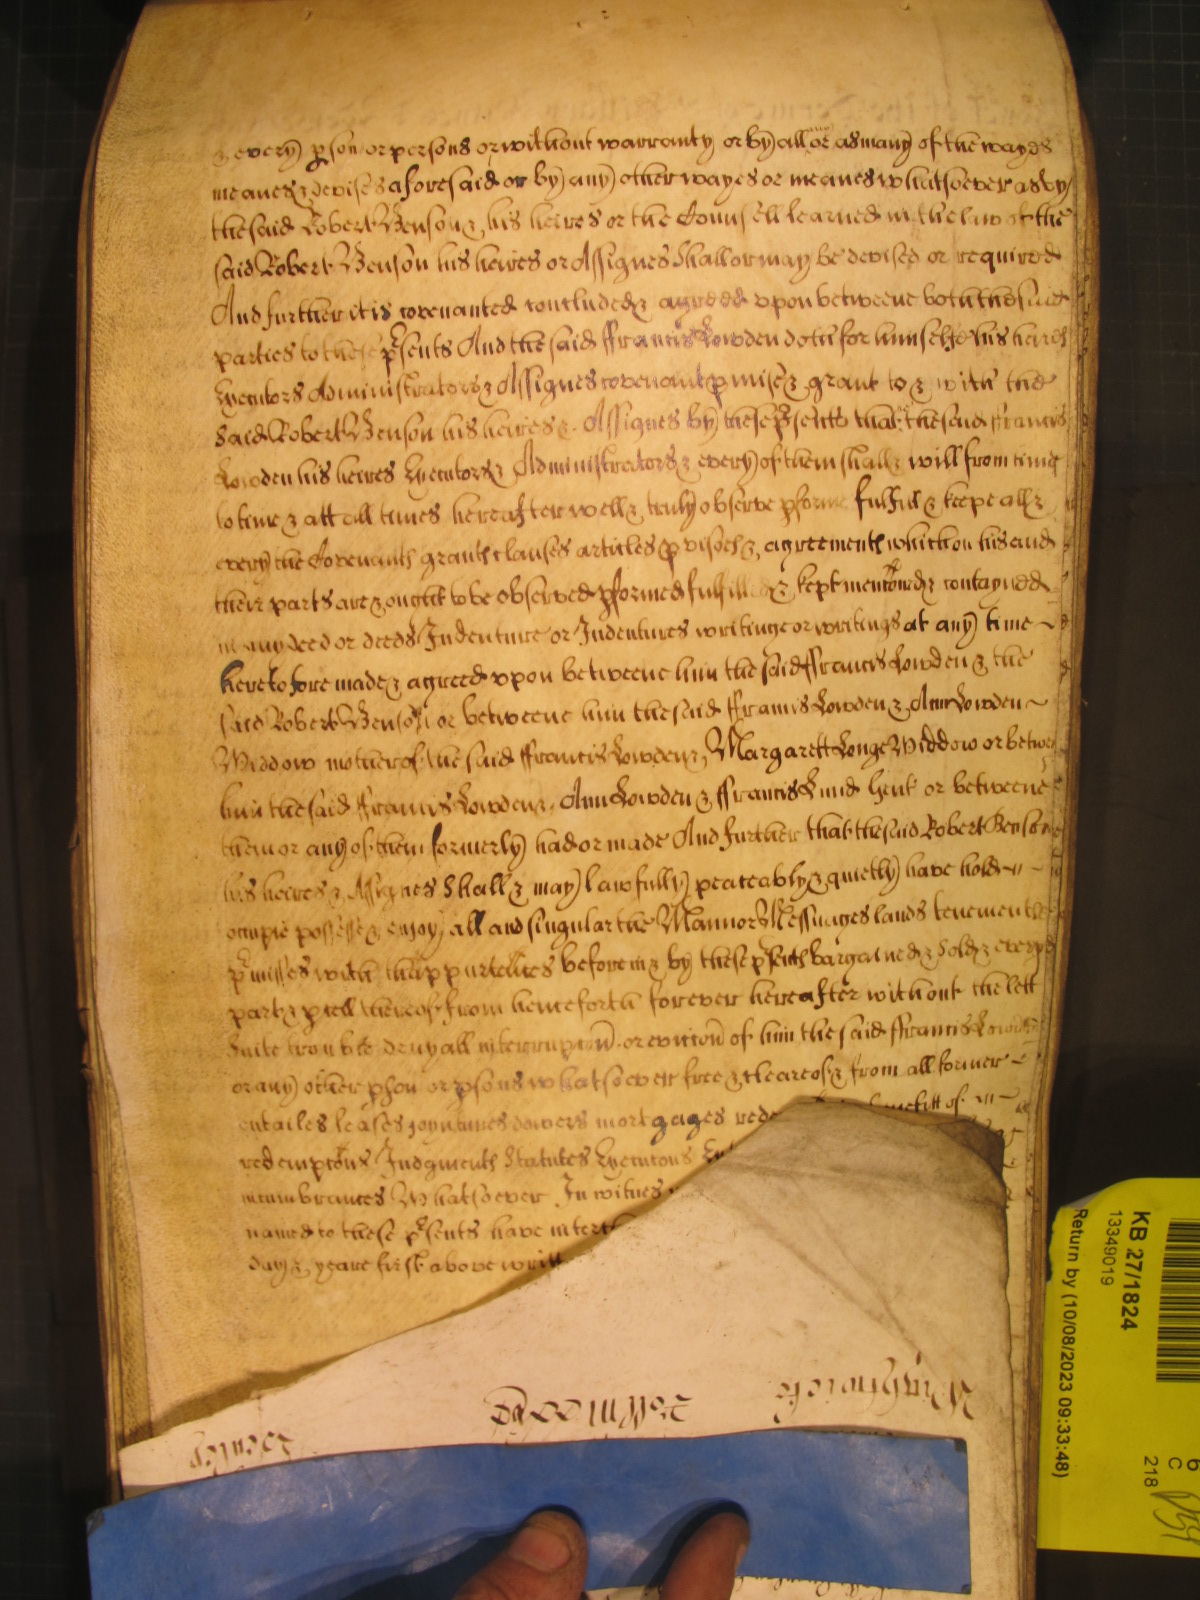 & every pson or persons or without warranty or by all or as many of the wayes
meanes & devises aforesaid or by any other wayes or meanes whatsoever as by
the said Robert Benson & his heires or the Counsell learned in the law of the
said Robert Benson his heires or Assignes shall or may be devised or required
And further it is covenanted concluded & agreed upon betweene both the said
parties to these psents And the said ffrancis Lowden doth for himselfe his heires
Executors Administrators & Assignes covenant pmise & grant to & with the
said Robert Benson his heires & Assignes by these psents that the said ffrancis
Lowden his heires Executors & Administrators & every of them shall & will from time
to time & att all times hereafter well & truly observe pforme fulfill & keepe all &
every the Covenants grants clauses articles pvisoes & agreements which on his and
their parts are & ought to be observed pformed fulfilled & kept menconed & contayned
in any deed or deeds Indenture or Indentures writinge or writings at any time
heretofore made & agreed upon betweene him the said ffrancis Lowden & the
said Robert Benson or betweene him the said ffrancis Lowden & Ann Lowden
Widdow mother of the said ffrancis Lowden & Margarett Longe Widdow or betweene
him the said ffrancis Lowden & Ann Lowden & ffrancis Lund Gent or betweene
them or any of them formerly had or made And further that the said Robert Benson
his heires & Assignes shall & may lawfully peaceably & quietly have hold
occupie possesse & enjoy all and singular the Mannor Messuages lands tenements
pmisses with thappurtences before in & by these psents bargained & sold & every
part & pcell thereof from henceforth forever hereafter without the lett
suite trouble denyall interrupcon or eviccon of him the said ffrancis Lowden
or any other pson or psons whatsoever free & cleare of & from all former
entailes leases joyntures dowers mortgages benefitt of
redempcons Judgments Statutes Execucons
incumbrances Whatsoever In witnes
named to these psents have
day & yeare first above writt
KB 27/1824
13349019
Return by (10/08/2023 09:33:48)
6
C
218